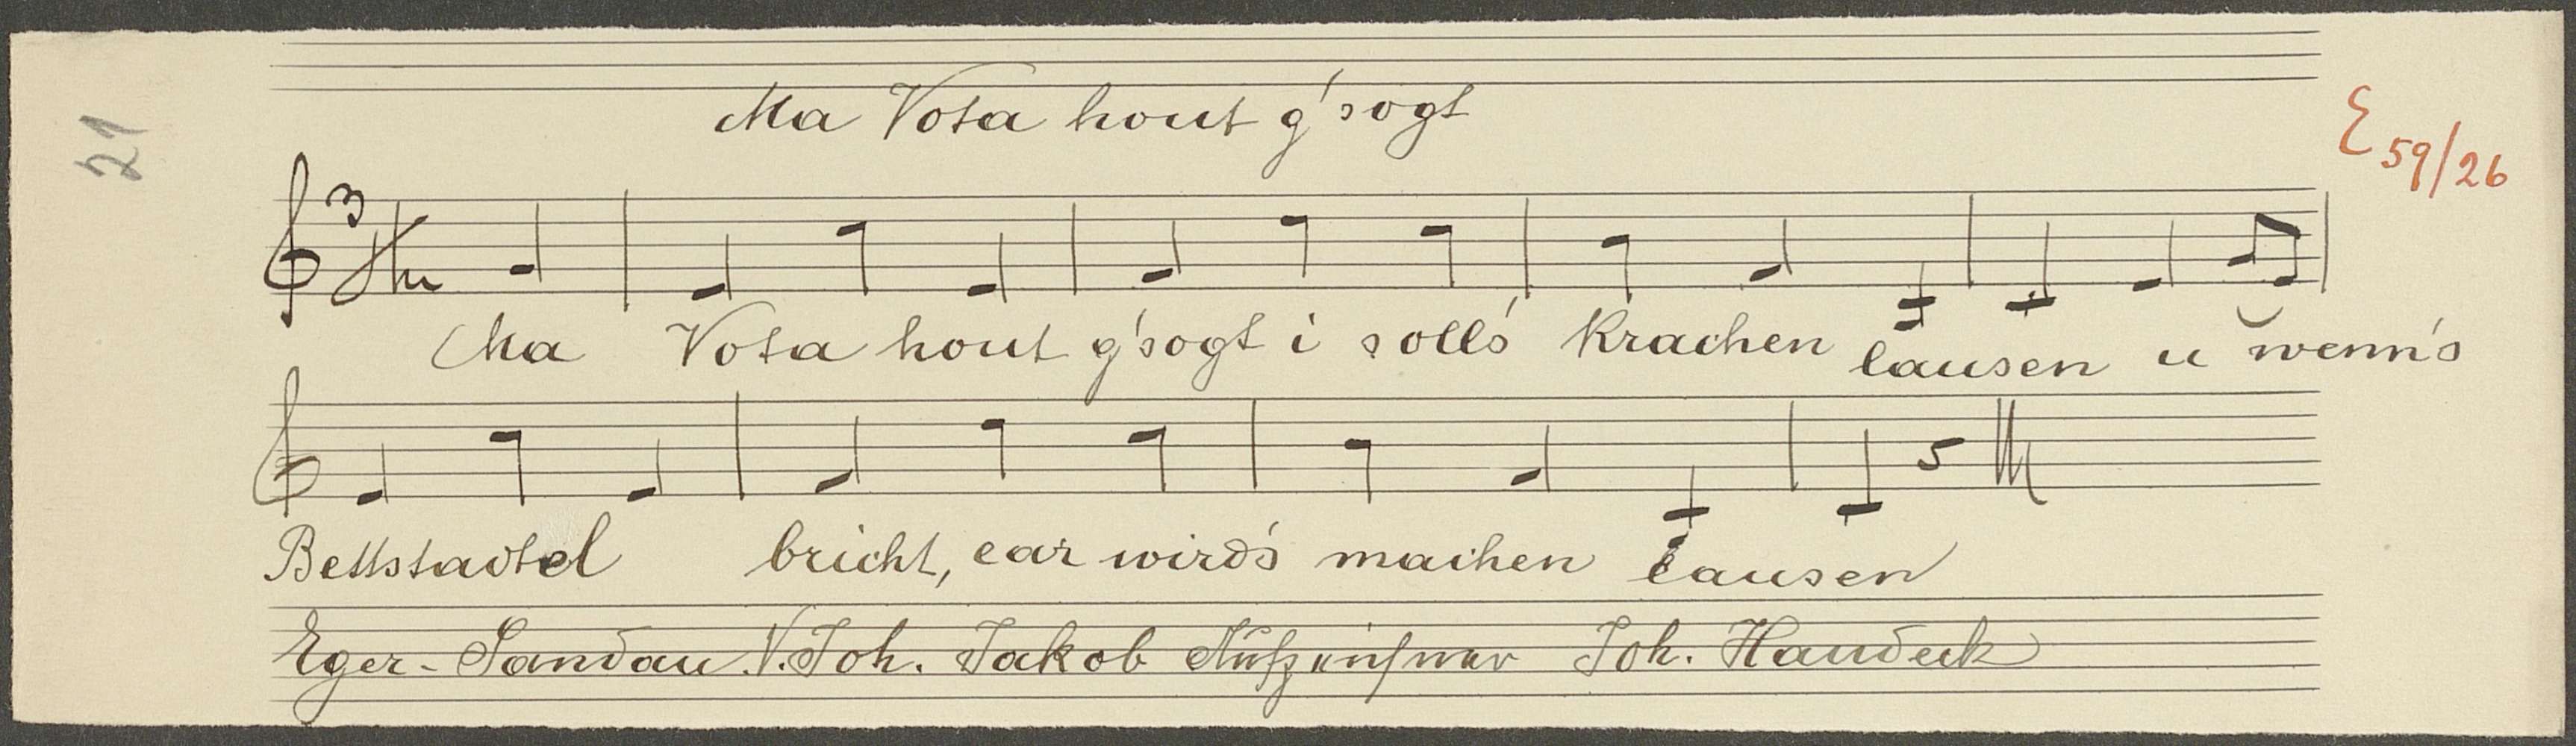 21
Ma Vota hout g'sogt
E 59/26
3/4
Ma Vota hout g'sogt i soll's krachen lausen u wenn's
Bettstadtel bricht, ear wird's machen lausen
Eger-Sandau. V. Joh. Jakob Aufzeichner Joh. Haudeck